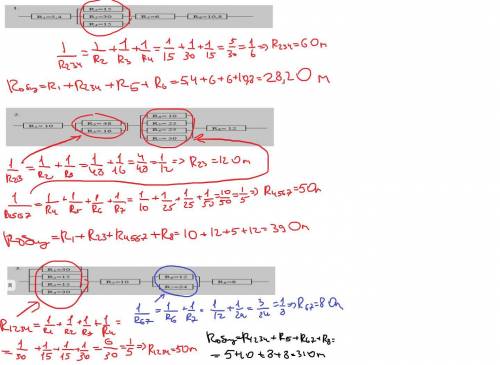 1.
R₁=5,4 R₂=15 R₃=30 R₄=15 R₅=6 R₆=10,8
1/R234 = 1/R2 + 1/R3 + 1/R4 = 1/15 + 1/30 + 1/15 = 5/30 = 1/6 => R234 = 6 Om
Robщ = R1 + R234 + R5 + R6 = 5,4 + 6 + 6 + 10,8 = 28,2 Om
2.
R₁=10 R₂=48 R₃=16 R₄=10 R₅=25 R₆=25 R₇=50 R₈=12
1/R23 = 1/R2 + 1/R3 = 1/48 + 1/16 = 4/48 = 1/12 => R23 = 12 Om
1/R4567 = 1/R4 + 1/R5 + 1/R6 + 1/R7 = 1/10 + 1/25 + 1/25 + 1/50 = 10/50 = 1/5 => R4567 = 5 Om
Robщ = R1 + R23 + R4567 + R8 = 10 + 12 + 5 + 12 = 39 Om
3.
R₁=30 R₂=15 R₃=15 R₄=30 R₅=10 R₆=12 R₇=24 R₈=8
1/R67 = 1/R6 + 1/R7 = 1/12 + 1/24 = 3/24 = 1/8 => R67 = 8 Om
R1234 = 1/R1 + 1/R2 + 1/R3 + 1/R4 =
= 1/30 + 1/15 + 1/15 + 1/30 = 6/30 = 1/5 => R1234 = 5 Om
Robщ = R1234 + R5 + R67 + R8 =
= 5 + 10 + 8 + 8 = 31 Om